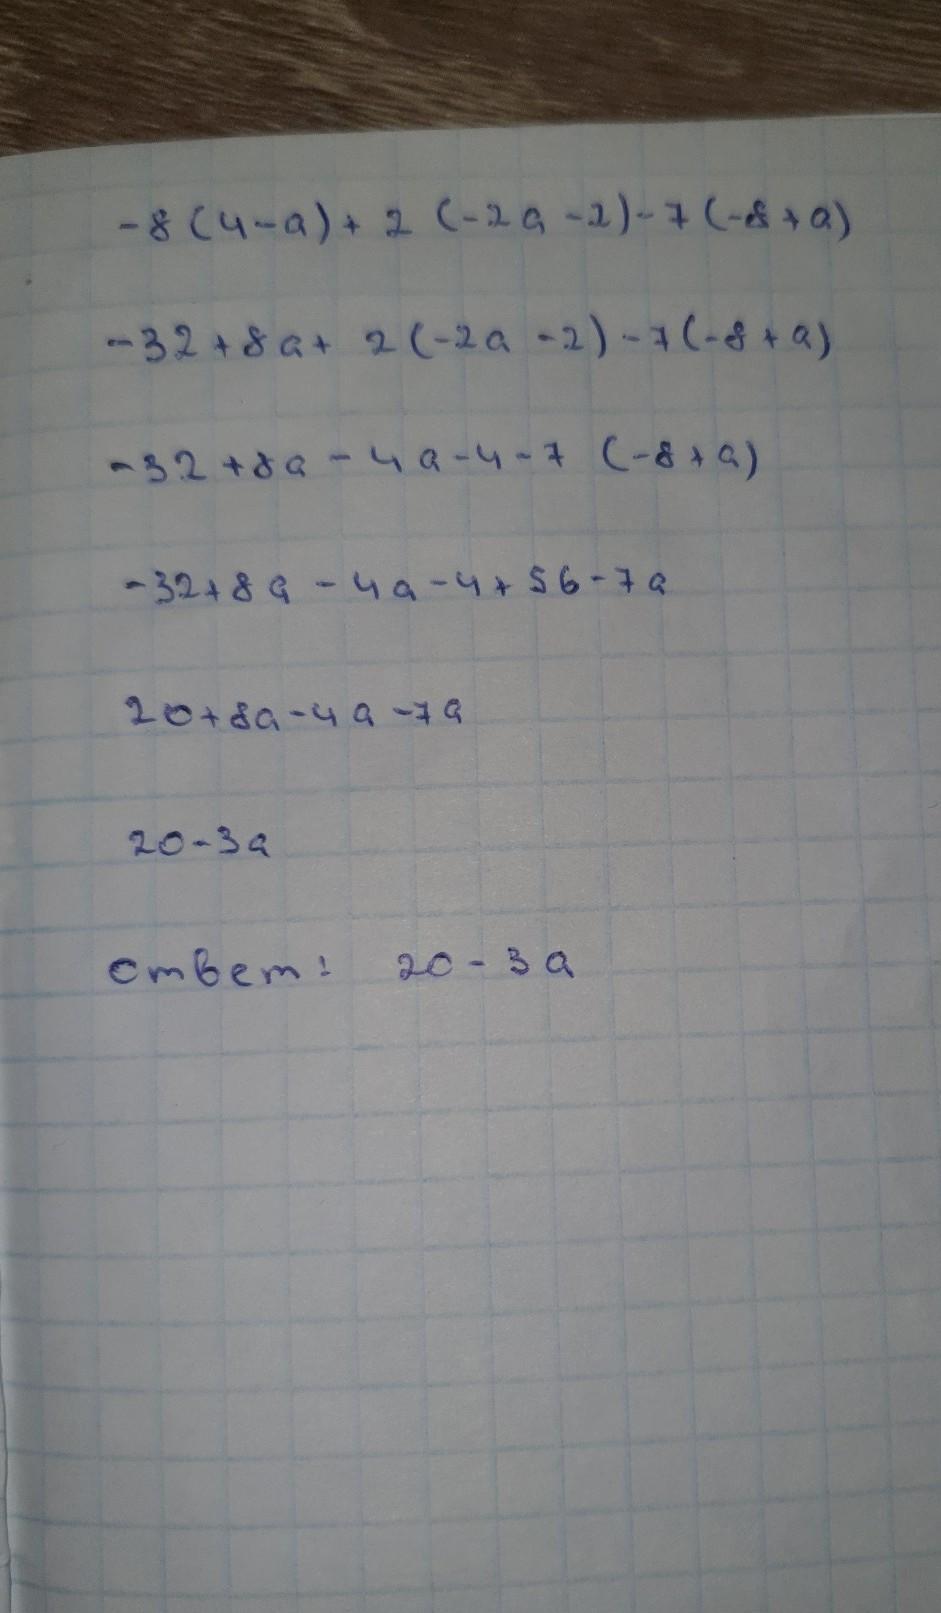 -8(4-a)+2(-2a-2)-7(-8+a)
-32+8a+2(-2a-2)-7(-8+a)
-32+8a-4a-4-7(-8+a)
-32+8a-4a-4+56-7a
20+8a-4a-7a
20-3a
ответ: 20-3a